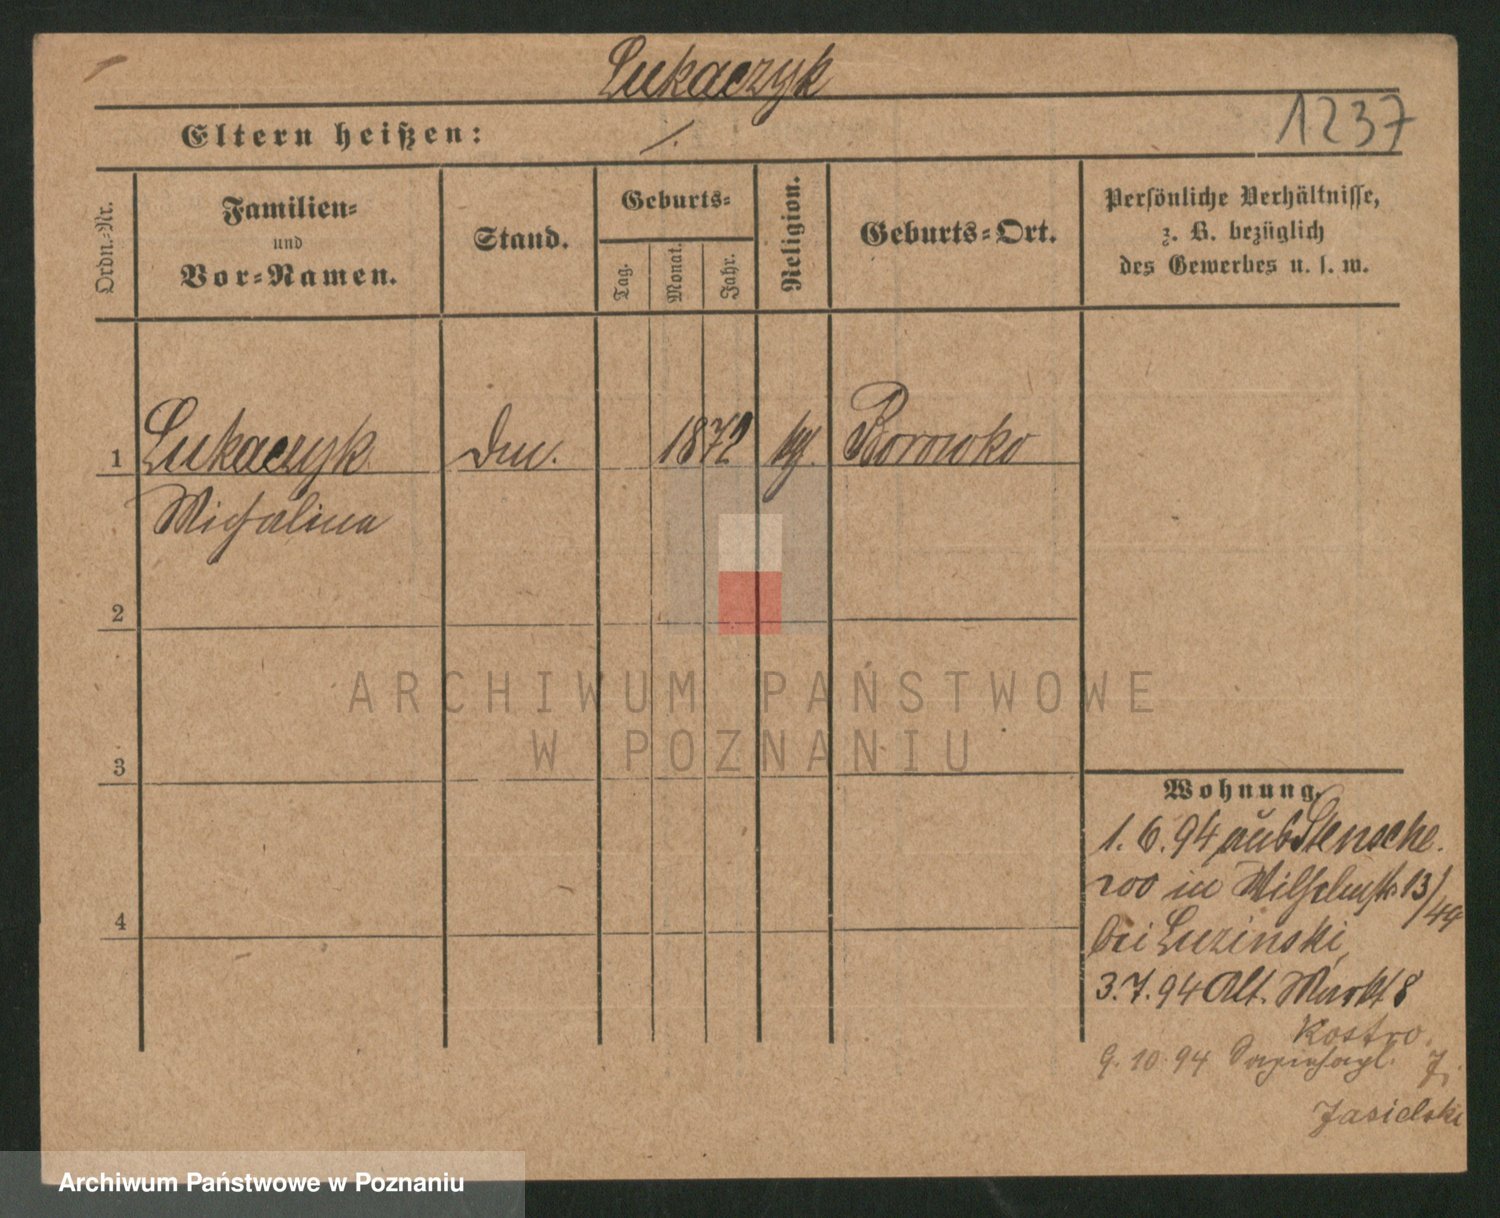 Lukaczyk
Eltern heißen: /.
1237
Ordn.-Nr.
Familien-
und
Vor-Namen.
Stand.
Geburts-
Tag.
Monat.
Jahr.
Religion.
Geburts-Ort.
Persönliche Verhältnisse,
z. B. bezüglich
des Gewerbes u. s. w.
1 Lukaczyk 1872 Borowko
Michalina
2
3
4
ARCHIWUM PAŃSTWOWE
W POZNANIU
Wohnung.
1. 6. 94 aus Stensche
woo in Wilhelmstr 13/49
bei Luzinski,
3. 7. 94 Alt. Markt 8
Kostro.
9. 10. 94
Jasielski
Archiwum Państwowe w Poznaniu